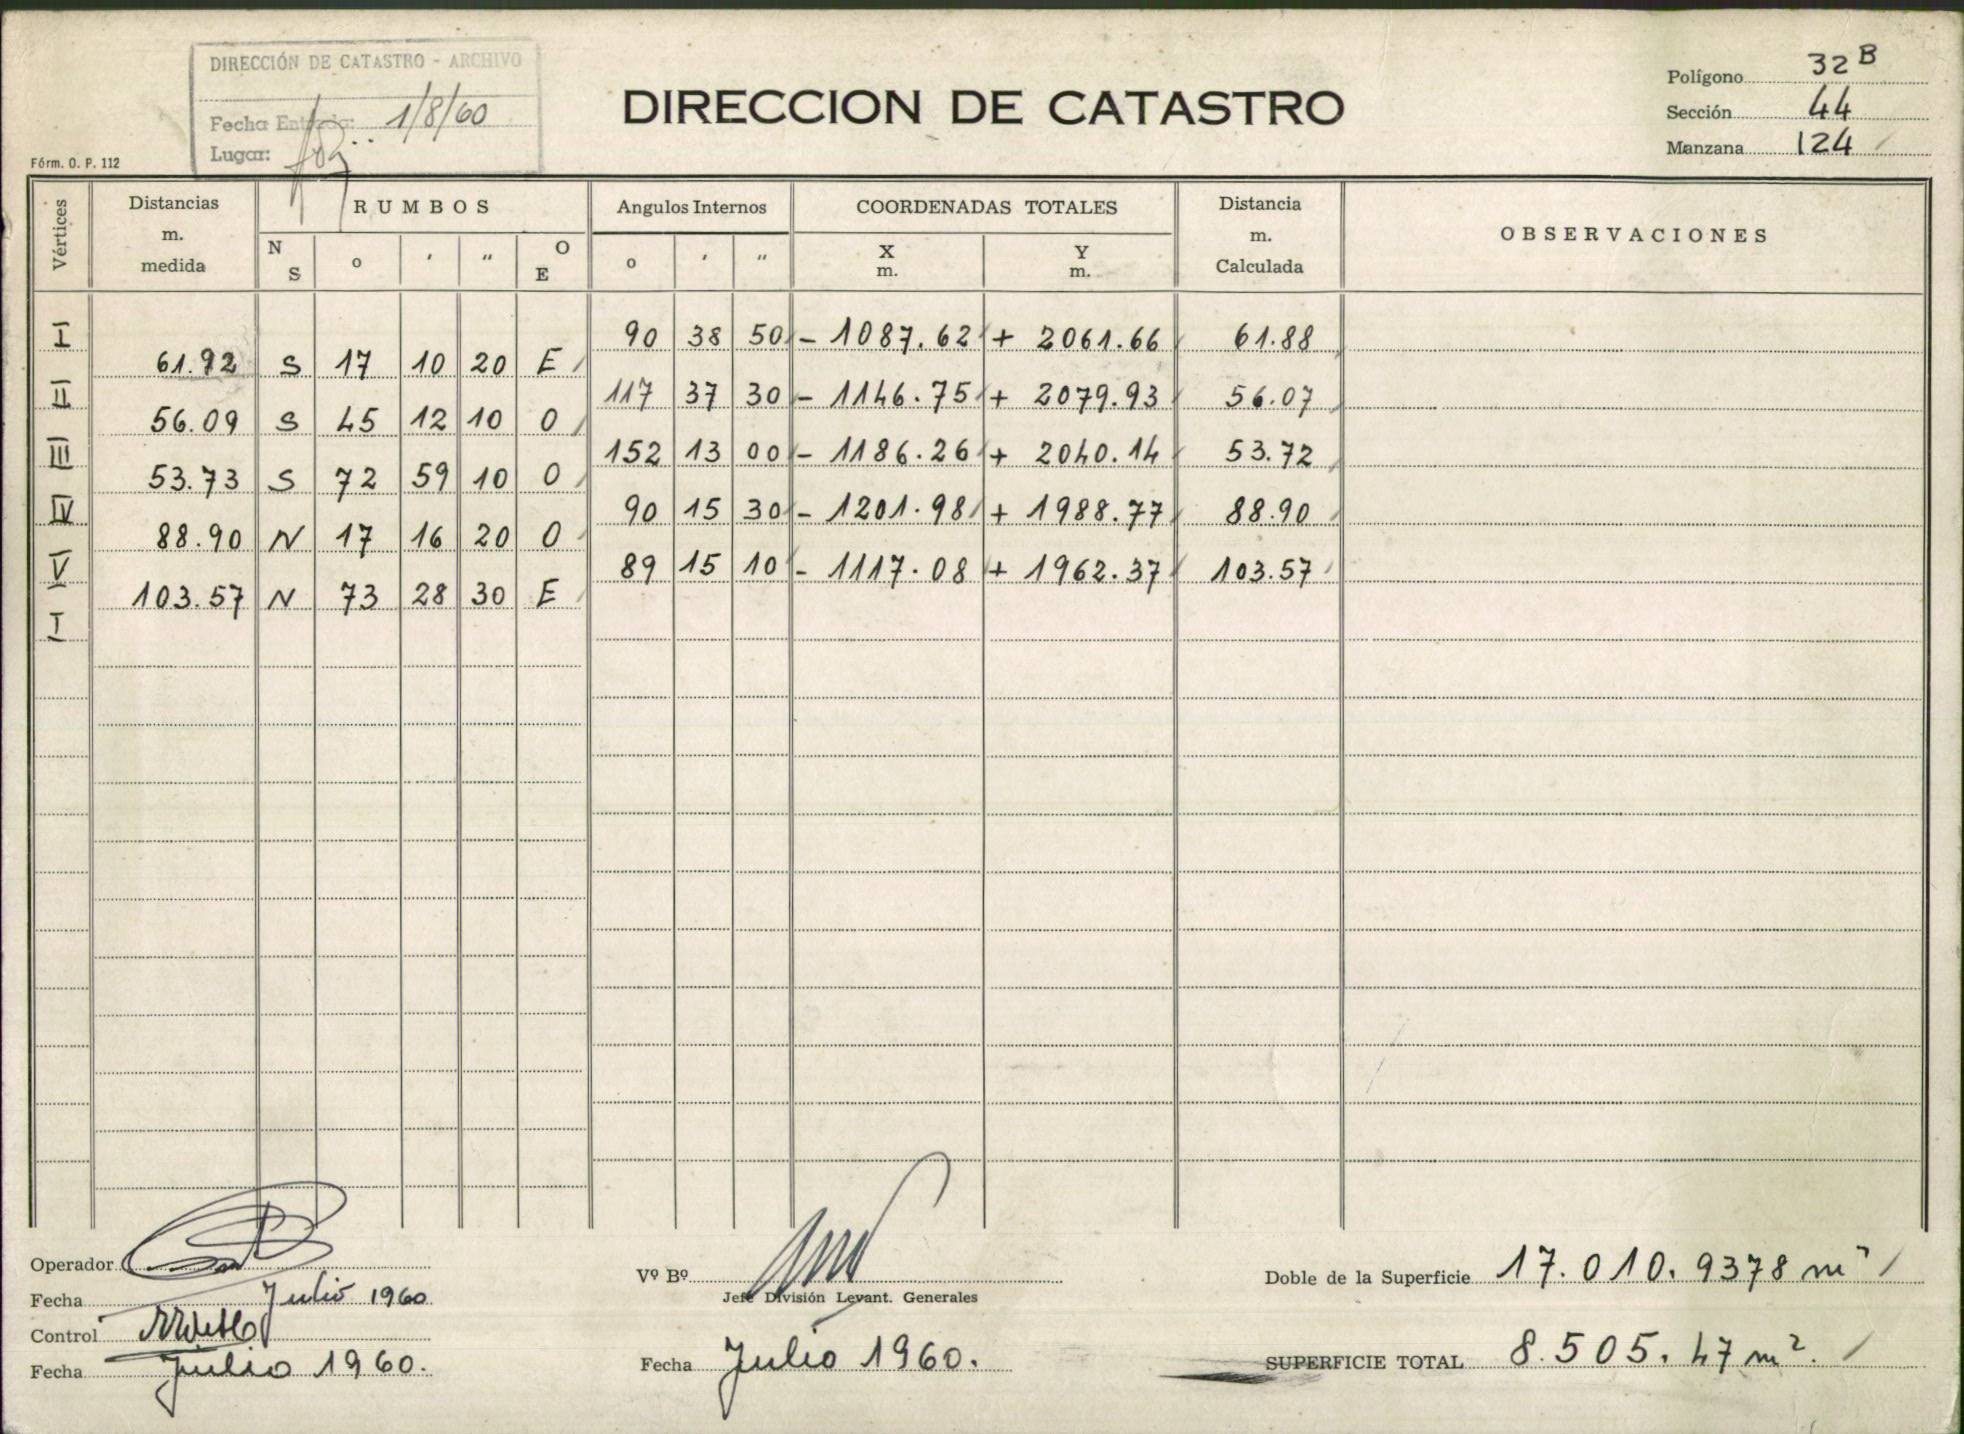 DIRECCIÓN DE CATASTRO - ARCHIVO
Fecha Entrada: 1/8/60
Lugar:
DIRECCION DE CATASTRO
Polígono 32 B
Sección 44
Manzana 124
Fórm. O. P. 112
Vértices Distancias m. medida RUMBOS N S o ' " O E Angulos Internos o ' " COORDENADAS TOTALES X m. Y m. Distancia m. Calculada OBSERVACIONES
I 90 38 50 - 1087.62 + 2061.66 61.88
61.92 S 17 10 20 E
II 117 37 30 - 1146.75 + 2079.93 56.07
56.09 S 45 12 10 O
III 152 13 00 - 1186.26 + 2040.14 53.72
53.73 S 72 59 10 O
IV 90 15 30 - 1201.98 + 1988.77 88.90
88.90 N 17 16 20 O
V 89 15 10 - 1117.08 + 1962.37 103.57
103.57 N 73 28 30 E
I
Operador
Fecha Julio 1960
Control
Fecha Julio 1960.
Vº Bº
Jefe División Levant. Generales
Fecha Julio 1960.
Doble de la Superficie 17.010.9378 m²
SUPERFICIE TOTAL 8.505.47 m².